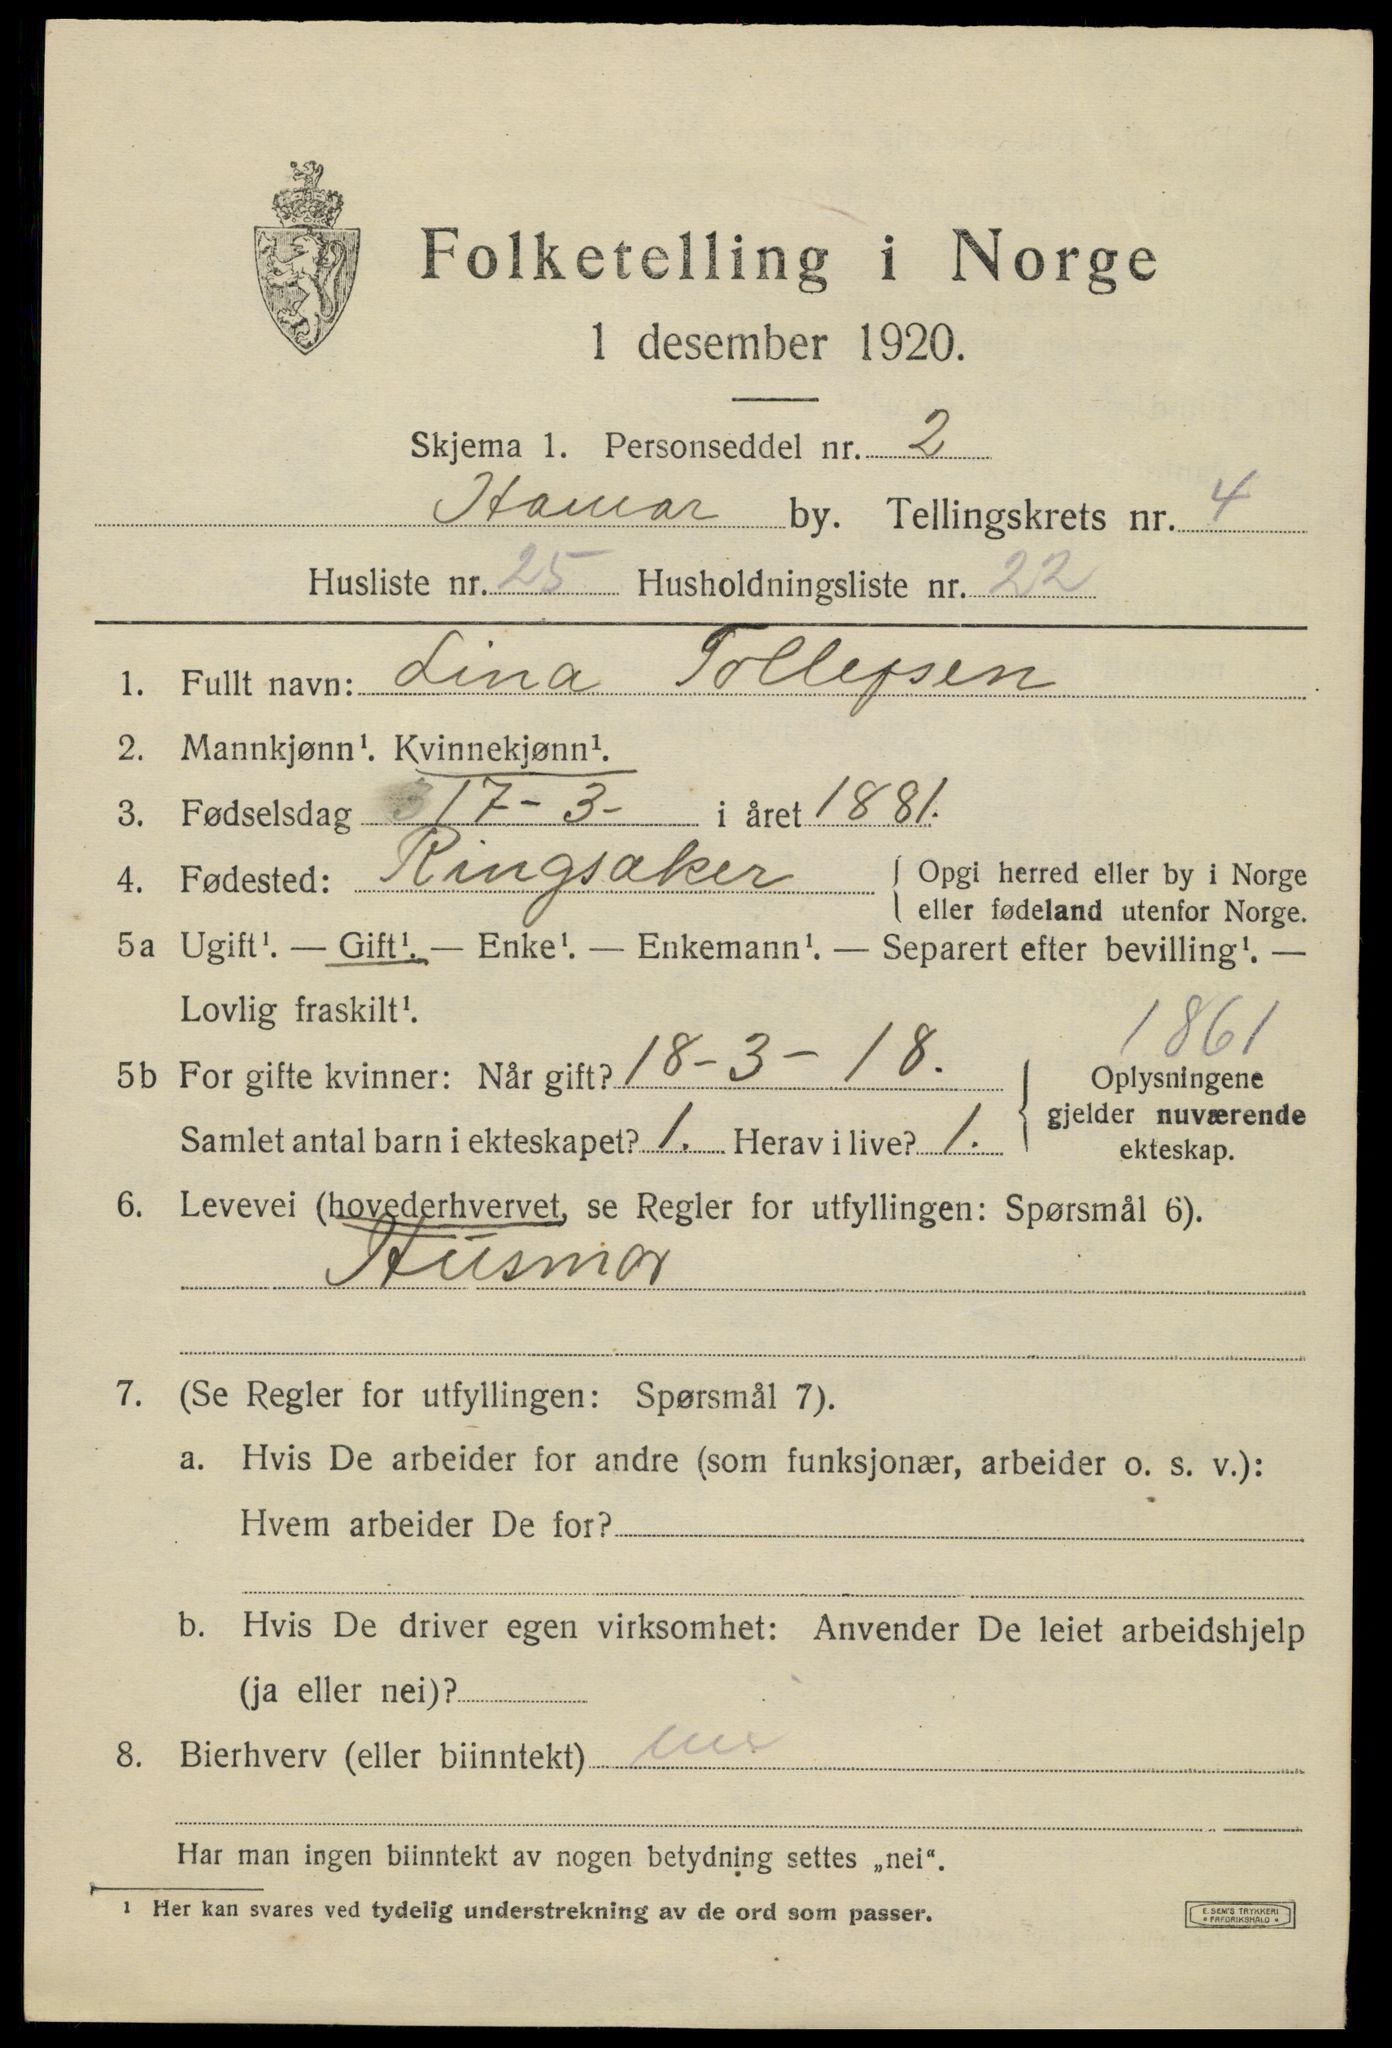 Folketelling i Norge
1 desember 1920.
Skjema 1. Personseddel nr. 2
Hamar by. Tellingskrets nr. 4
Husliste nr. 25 Husholdningsliste nr. 22
1. Fullt navn: Lina Tollefsen
2. Mannkjønn¹. Kvinnekjønn¹.
3. Fødselsdag 17-3- i året 1881.
4. Fødested: Ringsaker { Opgi herred eller by i Norge
eller fødeland utenfor Norge.
5a Ugift¹. — Gift¹. — Enke¹. — Enkemann¹. — Separert efter bevilling¹. —
Lovlig fraskilt¹.
1861
5b For gifte kvinner: Når gift? 18-3-18. { Oplysningene
gjelder nuværende
Samlet antal barn i ekteskapet? 1. Herav i live? 1.
ekteskap.
6. Levevei (hovederhvervet, se Regler for utfyllingen: Spørsmål 6).
Husmor
7. (Se Regler for utfyllingen: Spørsmål 7).
a. Hvis De arbeider for andre (som funksjonær, arbeider o. s. v.):
Hvem arbeider De for?
b. Hvis De driver egen virksomhet: Anvender De leiet arbeidshjelp
(ja eller nei)?
8. Bierhverv (eller biinntekt) nei
Har man ingen biinntekt av nogen betydning settes „nei“.
¹ Her kan svares ved tydelig understrekning av de ord som passer.
E. SEM'S TRYKKERI
• FREDRIKSHALD •